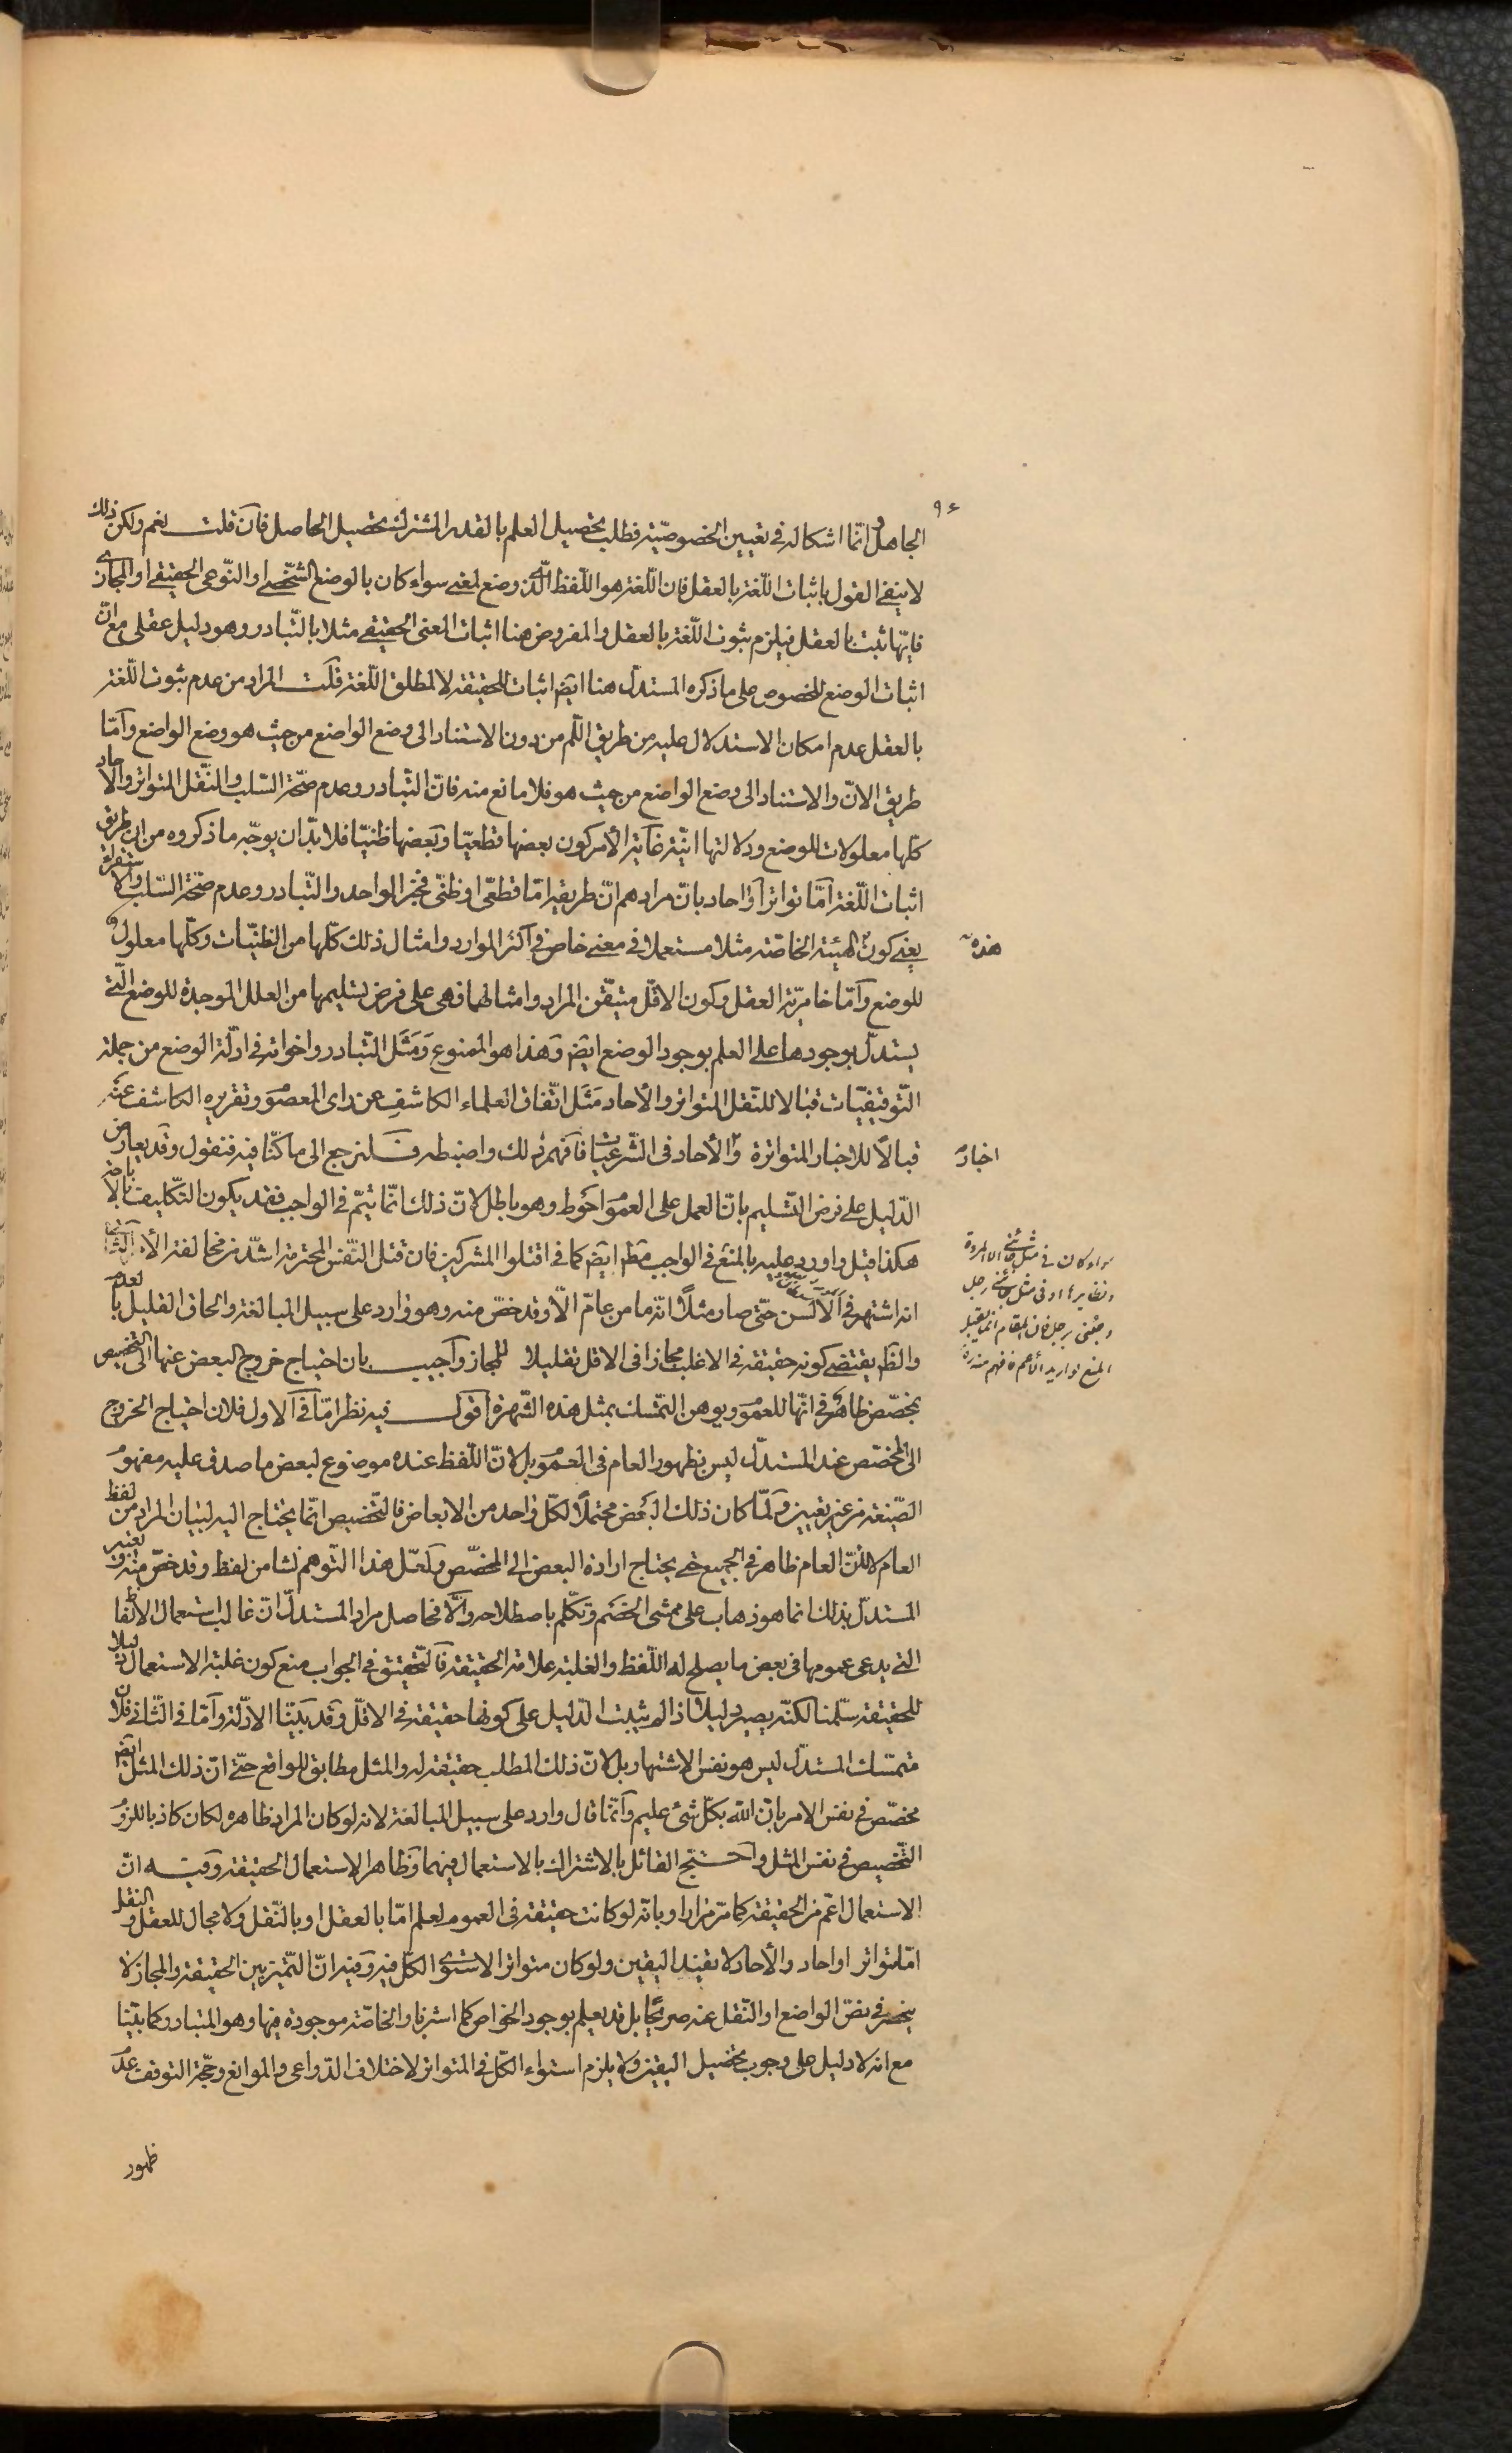 ٩٤
الجاهل وانّما اشكاله فى تعيين الخصوصيّة فطلب تحصيل العلم بالقدر المشترك تحصيل الحاصل فان قلت نعم ولكن ذلك
لا ينفى القول باثبات اللّغة بالعقل فان اللّغة هو اللّفظ الّذى وضع لمعنى سواء كان بالوضع الشّخصى او النّوعى الحقيقى او المجازى
فايّها ثبت بالعقل فيلزم ثبوت اللّغة بالعقل والمفروض هنا اثبات المعنى الحقيقى مثلا بالتّبادر وهو دليل عقلى مع انّ
اثبات الوضع المخصوص على ما ذكره المستدلّ هنا ايضا اثبات للحقيقة لا لمطلق اللّغة قلت المراد من عدم ثبوت اللّغة
بالعقل عدم امكان الاستدلال عليه من طريق اللّم من دون الاستناد الى وضع الواضع من حيث هو وضع الواضع وامّا
طريق الانّ والاستناد الى وضع الواضع من حيث هو فلا مانع منه فانّ التّبادر وعدم صحّة السّلب والنّقل المتواتر والاحاد
كلّها معلولات للوضع ودلالتها انّيّة غاية الأمر كون بعضها قطعيّا وبعضها ظنيّا فلا بدّ ان يوجّه ما ذكروه من ان طريق
اثبات اللّغة امّا تواتر او احاد بانّ مرادهم انّ طريقه امّا قطعّى او ظنّى فخبر الواحد والتّبادر وعدم صحّة السّلب والاستقراء
يعنى كون هذه الهيئة الخاصّة مثلا مستعملا فى معنى خاص فى اكثر الموارد وامثال ذلك كلّها من الظنيّات وكلّها معلول
للوضع وامّا خامريّة العقل وكون الاقلّ متيقّن المراد وامثالهما فهى على فرض تسليمها من العلل الموجدة للوضع الّتى
يستدلّ بوجودها على العلم بوجود الوضع ايضا وهذا هو الممنوع ومثل التّبادر واخواته فى ادلّة الوضع من جملة
التّوقيفيّات قبالا للنّقل المتواتر والأحاد مثل اتّفاق العلماء الكاشف عن راى المعصوم وتقريره الكاشف عنه
قبالاً للاخبار المتواترة واخبار الأحاد فى الشّرعيّات فافهم ذلك واضبطه فلنرجع الى ما كنّا فيه فنقول وقد يعارض
الدّليل على فرض التّسليم بانّ العمل على العموم احوط وهو باطل لانّ ذلك انّما يتمّ فى الواجب فقد يكون التّكليف بالاباحة
هكذا قيل واورد عليه بالمنع فى الواجب مطلقا ايضا كما فى اقتلوا المشركين فان قتل النّفس المحترمة اشدّ من مخالفة الأمر الثالث
انه اشتهر فى الألسن حتّى صار مثلاً انّه ما من عامّ الّا وقد خصّ منه وهو وارد على سبيل المبالغة والحاق القليل بالعدم
والظاهر يقتضى كونه حقيقة فى الاغلب مجازا فى الاقل تقليلا للمجاز واجيب بان احتياج خروج البعض عنها الى التّخصيص
بمخصّص ظاهر فى انّها للعموم ويوهن التمسّك بمثل هذه الشّهرة اقول فيه نظر امّا فى الاول فلان احتياج الخروج
الى المخصّص عند المستدلّ ليس بظهور العام فى العموم بل لانّ اللّفظ عنده موضوع لبعض ما صدق عليه مفهوم
الصّيغة من غير تعيين ولمّا كان ذلك البعض محتملاً لكلّ واحد من الابعاض فالتّخصيص انّما يحتاج اليه لبيان المراد من لفظ
العام لا لانّ العام ظاهر فى الجميع حتى يحتاج ارادة البعض الى المخصّص ولعلّ هذا التّوهم نشا من لفظ وقد خصّ منه وتعبير
المستدلّ بذلك انما هو ذهاب على ممشى الخصم وتكلّم باصطلاحه والّا فحاصل مراد المستدلّ انّ غالب استعمال الالفاظ
التى يدعى عمومها فى بعض ما يصلح له اللّفظ والغلبة علامة الحقيقة فالتّحقيق فى الجواب منع كون غلبة الاستعمال دليلا
للحقيقة سلّمنا لكنّه يصير دليلا اذا لم يثبت الدّليل على كونها حقيقة فى الاقلّ وقد بيّنّا الادلّة وامّا فى الثّانى فلان
متمسّك المستدلّ ليس هو نفس الاشتهار بل لانّ ذلك المطلب حقيقة له والمثل مطابق للواقع حتّى انّ ذلك المثل ايضا
مخصّص فى نفس الامر بانّ الله بكلّ شىء عليم وانّما قال وارد على سبيل المبالغة لانه لو كان المراد ظاهره لكان كاذبا للزوم
التّخصيص فى نفس المثل واحتجّ القائل بالاشتراك بالاستعمال فيهما وظاهر الاستعمال الحقيقة وفيه انّ
الاستعمال اعّم من الحقيقة كما مرّ مرارا وبانّه لو كانت حقيقة فى العموم لعلم امّا بالعقل او بالنّقل ولا مجال للعقل والنّقل
امّا متواتر او احاد والأحاد لا يفيد اليقين ولو كان متواترا لاستوى الكلّ فيه وفيه انّ التّميز بين الحقيقة والمجاز لا
ينحصر فى نصّ الواضع او النّقل عنه صريحا بل قد يعلم بوجود الخواص كما اشرنا والخاصّة موجودة فيها وهو المتبادر كما بيّنّا
مع انه لا دليل على وجوب تحصيل اليقين ولا يلزم استواء الكلّ فى المتواتر لاختلاف الدّواعى والموانع وحجّة التوقف عدم
ظهور
هذه
اخبار
سواء كان فى مثل
ونظايرها او فى مثل جائنى رجل
وجئنى برجل فان المقام انما يقبل
المنع لو اريد الاعم فافهم منه